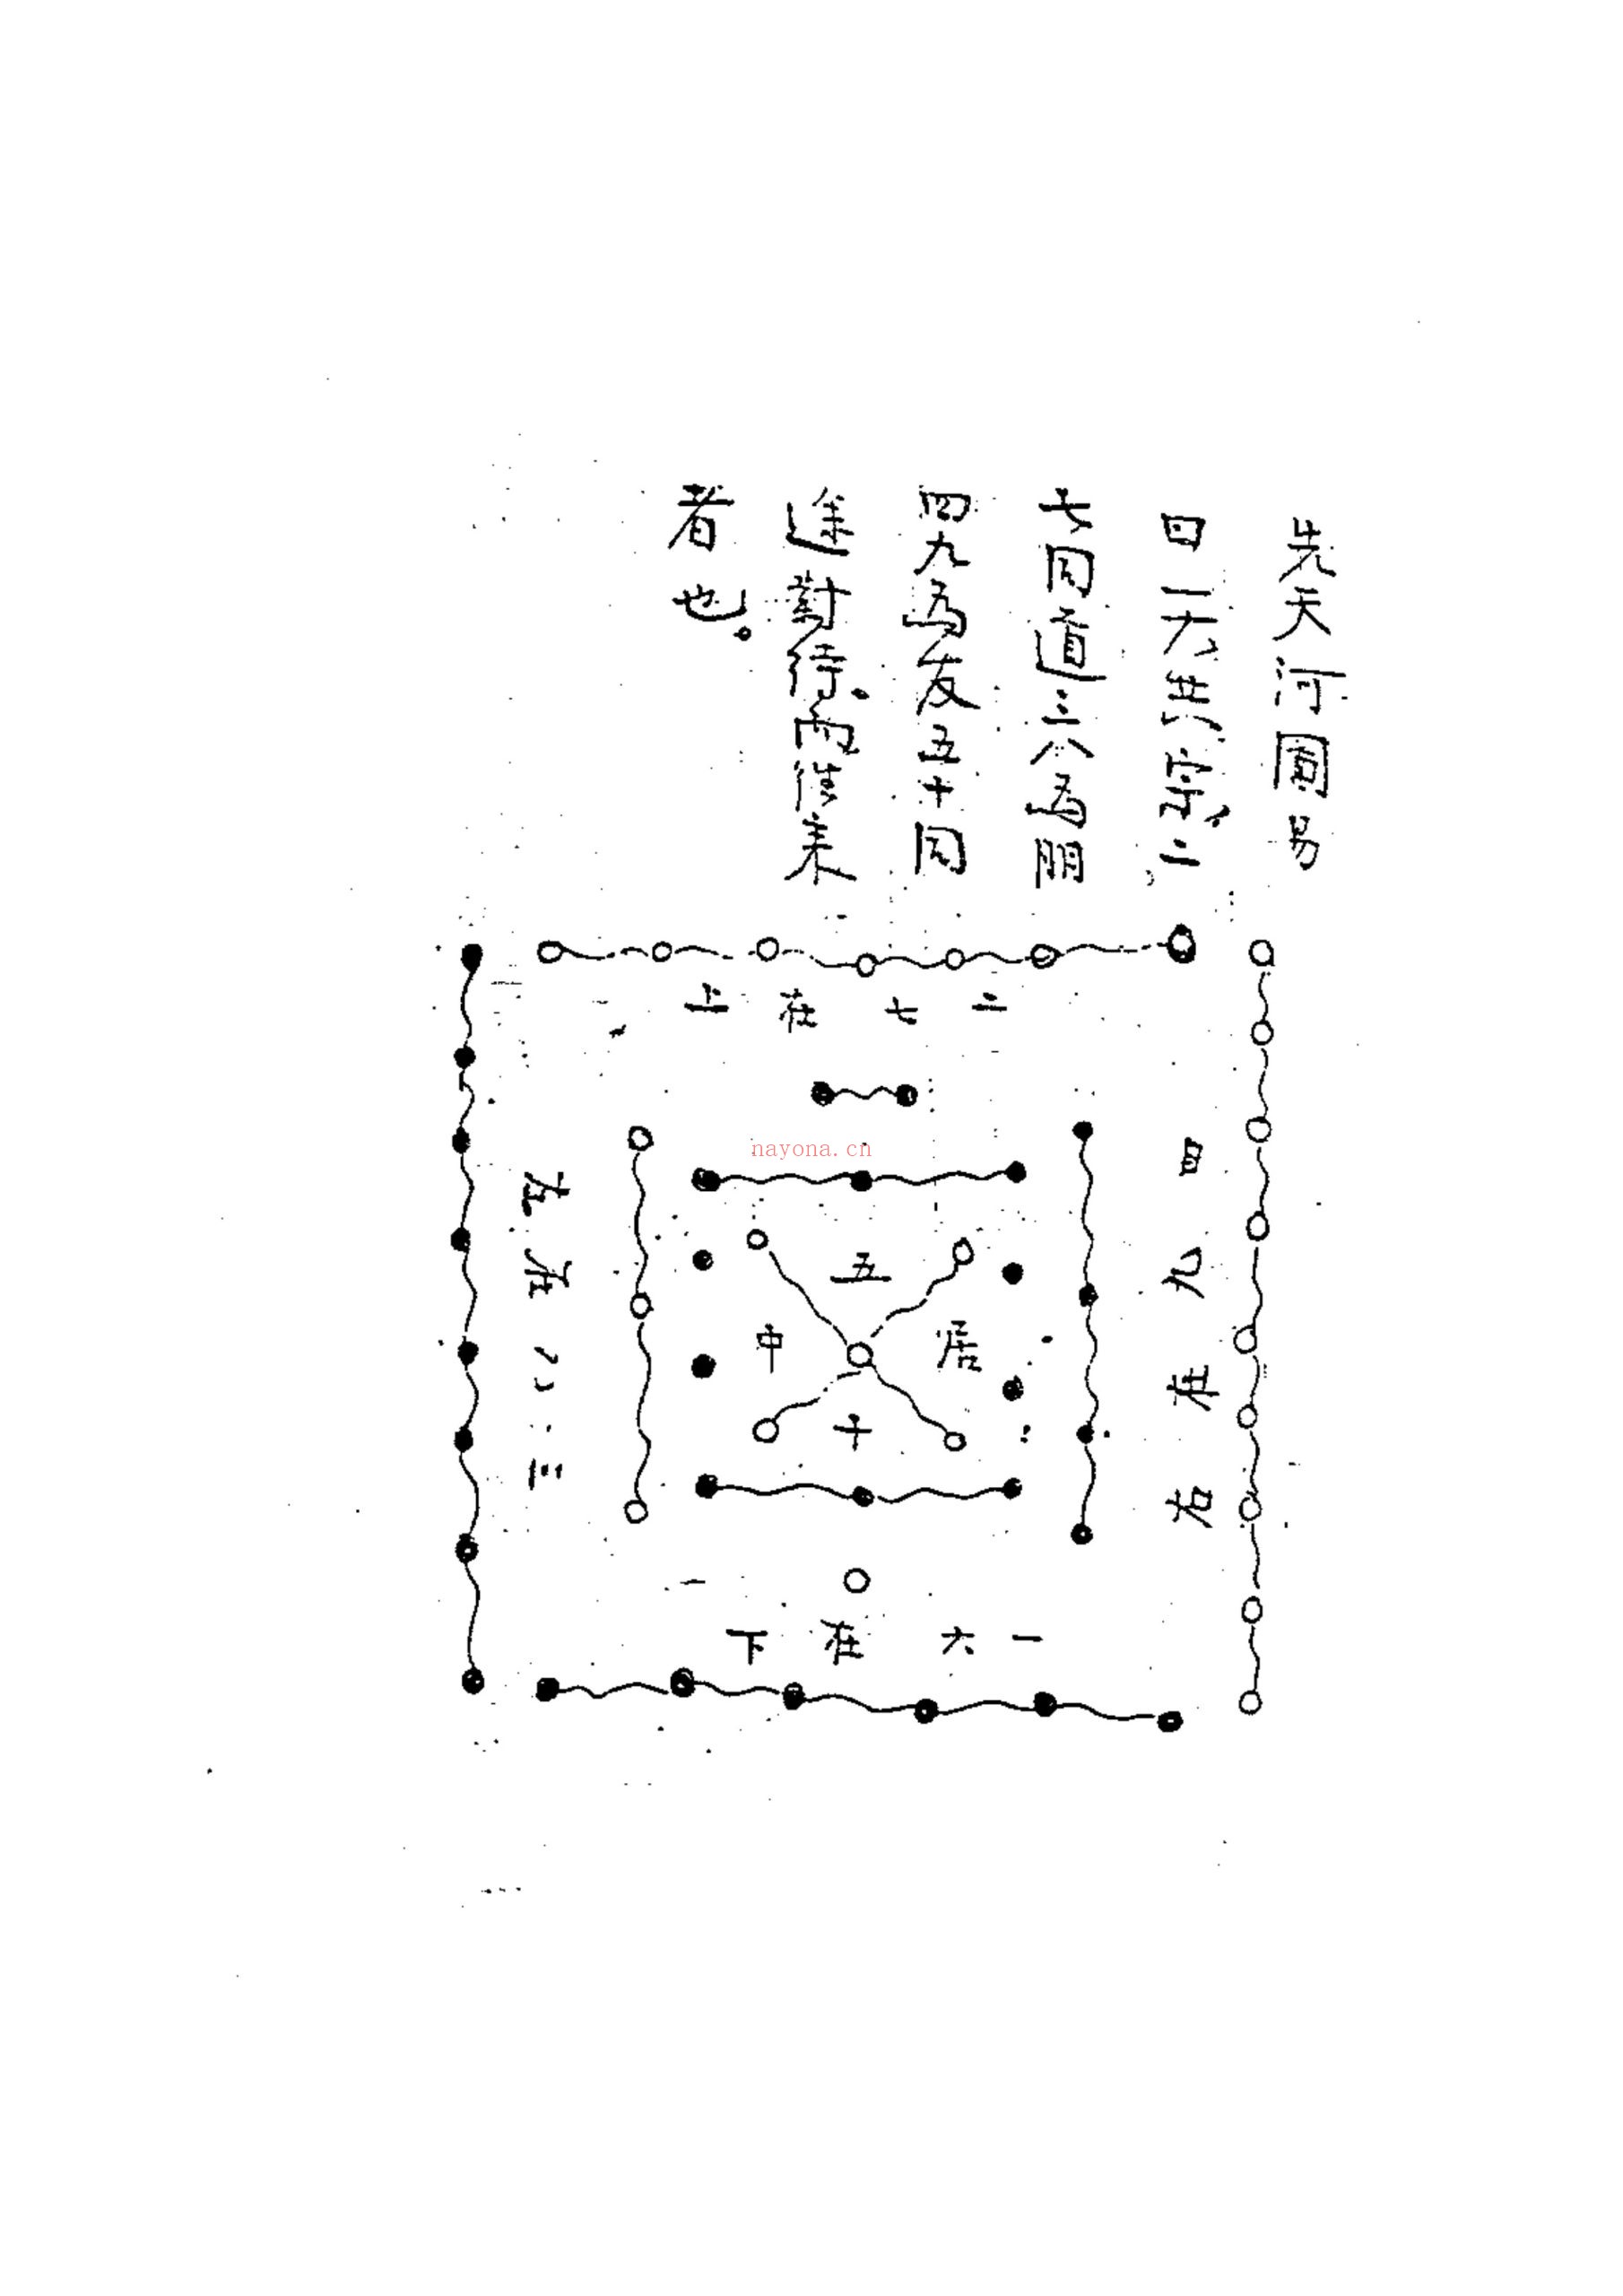 先天河圖易
曰一六共宗、二
七同道三八為朋
四九為友五十同
途對待、而往來
者也。
二七在上
四九在右
五
居
中
十
三八居左
一六在下
nayona.cn